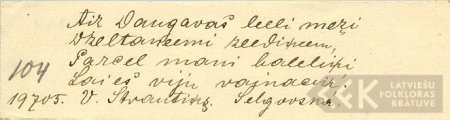 Aiz Daugavas lieli meži
Dzeltaniemi ziediņiem,
Parcel mani bāleliņi
104 Lai es viju vajnaciņi.
19705. V. Strautiņš. Selgovskā.
LATVIEŠU
FOLKLORAS
KRĀTUVE